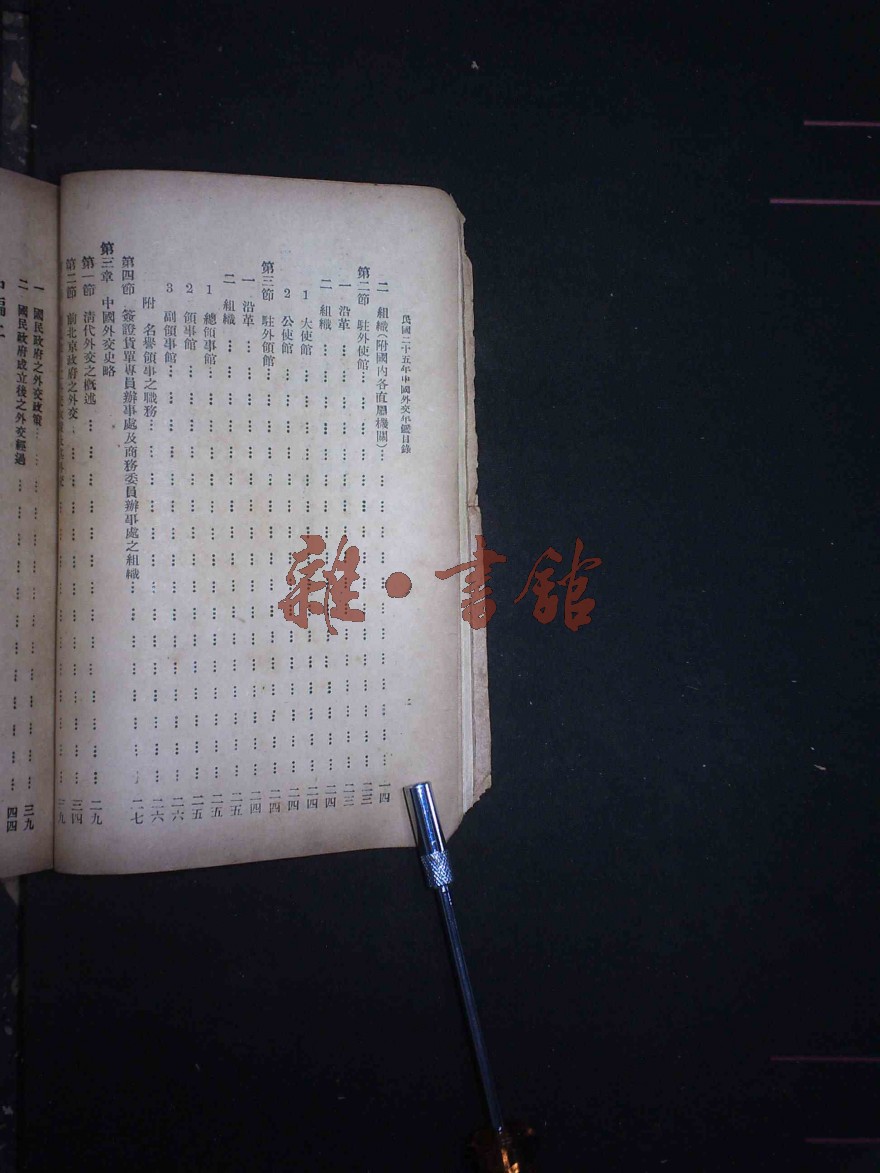 民國二十五年中國外交年鑑目錄
二
二 組織(附國內各直屬機關)… 一四
第二節 駐外使館… 二三
一 沿革… 二三
二 組織… 二四
1 大使館… 二四
2 公使館… 二四
第三節 駐外領館… 二四
一 沿革… 二四
二 組織… 二五
1 總領事館… 二五
2 領事館… 二五
3 副領事館… 二六
附 名譽領事之職務… 二六
第四節 簽證貨單專員辦事處及商務委員辦事處之組織… 二七
第三章 中國外交史略
第一節 清代外交之概述… 二九
第二節 前北京政府之外交… 三四
一 國民政府之外交政策… 三九
二 國民政府成立後之外交經過… 四四
雜·書館